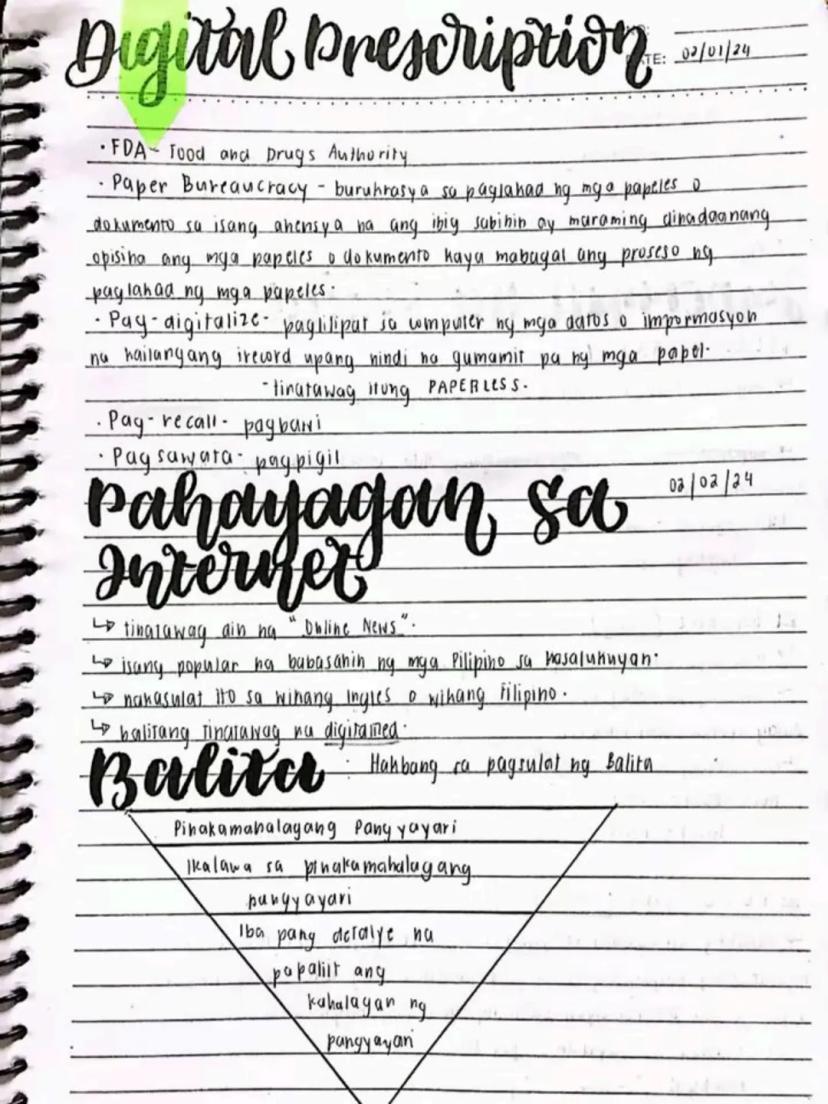 Digital Prescription
DATE: 02/01/24
• FDA - Food and Drugs Authority
• Paper Bureaucracy - burukrasya sa paglahad ng mga papeles o
dokumento sa isang ahensya na ang ibig sabihin ay maraming dinadaanang
opisina ang mga papeles o dokumento kaya mabagal ang proseso ng
paglahad ng mga papeles.
• Pag-digitalize - paglilipat sa computer ng mga datos o impormasyon
na kailangang irecord upang hindi na gumamit pa ng mga papel.
- tinatawag itong PAPERLESS.
• Pag-recall - pagbawi
• Pagsawata - pagpigil
Pahayagan sa
02/02/24
Internet
↳ tinatawag din na "Online News".
↳ isang popular na babasahin ng mga Pilipino sa kasalukuyan.
↳ nakasulat ito sa wikang Ingles o wikang Filipino.
↳ balitang tinatawag na digitized.
Balita : Hakbang sa pagsulat ng Balita
Pinakamahalagang Pangyayari
Ikalawa sa pinakamahalagang
pangyayari
Iba pang detalye na
papaliit ang
kahalagan ng
pangyayari